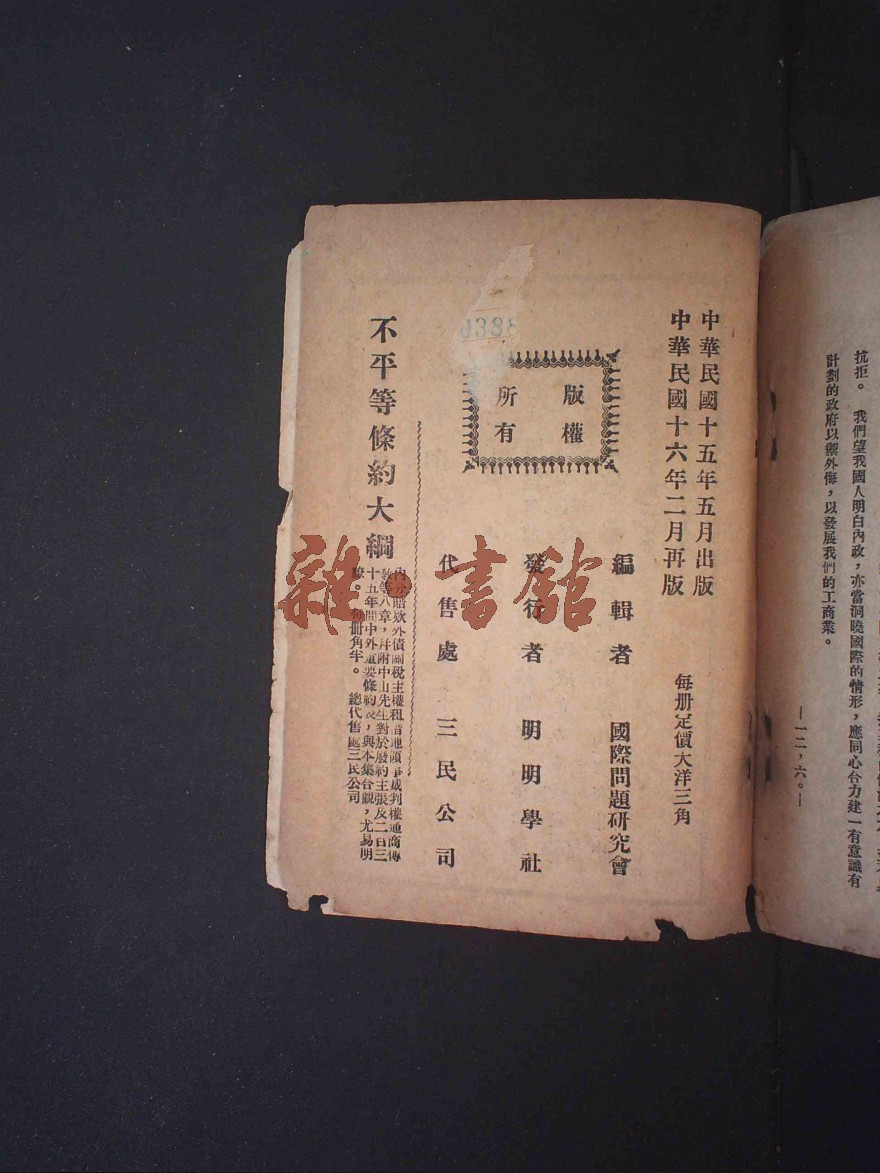 抗拒。　我們望我國人明白內政，亦當洞曉國際的情形，應同心合力建一有意識有
計劃的政府以禦外侮，以發展我們的工商業。
—一二，六。—
中華民國十五年五月出版
中華民國十六年二月再版
每册定價大洋三角
版權
所有
編輯者　國際問題研究會
發行者　明明學社
代售處　三民公司
不平等條約大綱
內分賠欵外債關稅主權租借地領事裁判權通商傳
教等八章，幷附中山先生對於廢約主張及二百三
十五年間中外重要條約表，與本集合觀，尤易明
瞭。每册角半。　總代售處三民公司
雜·書館